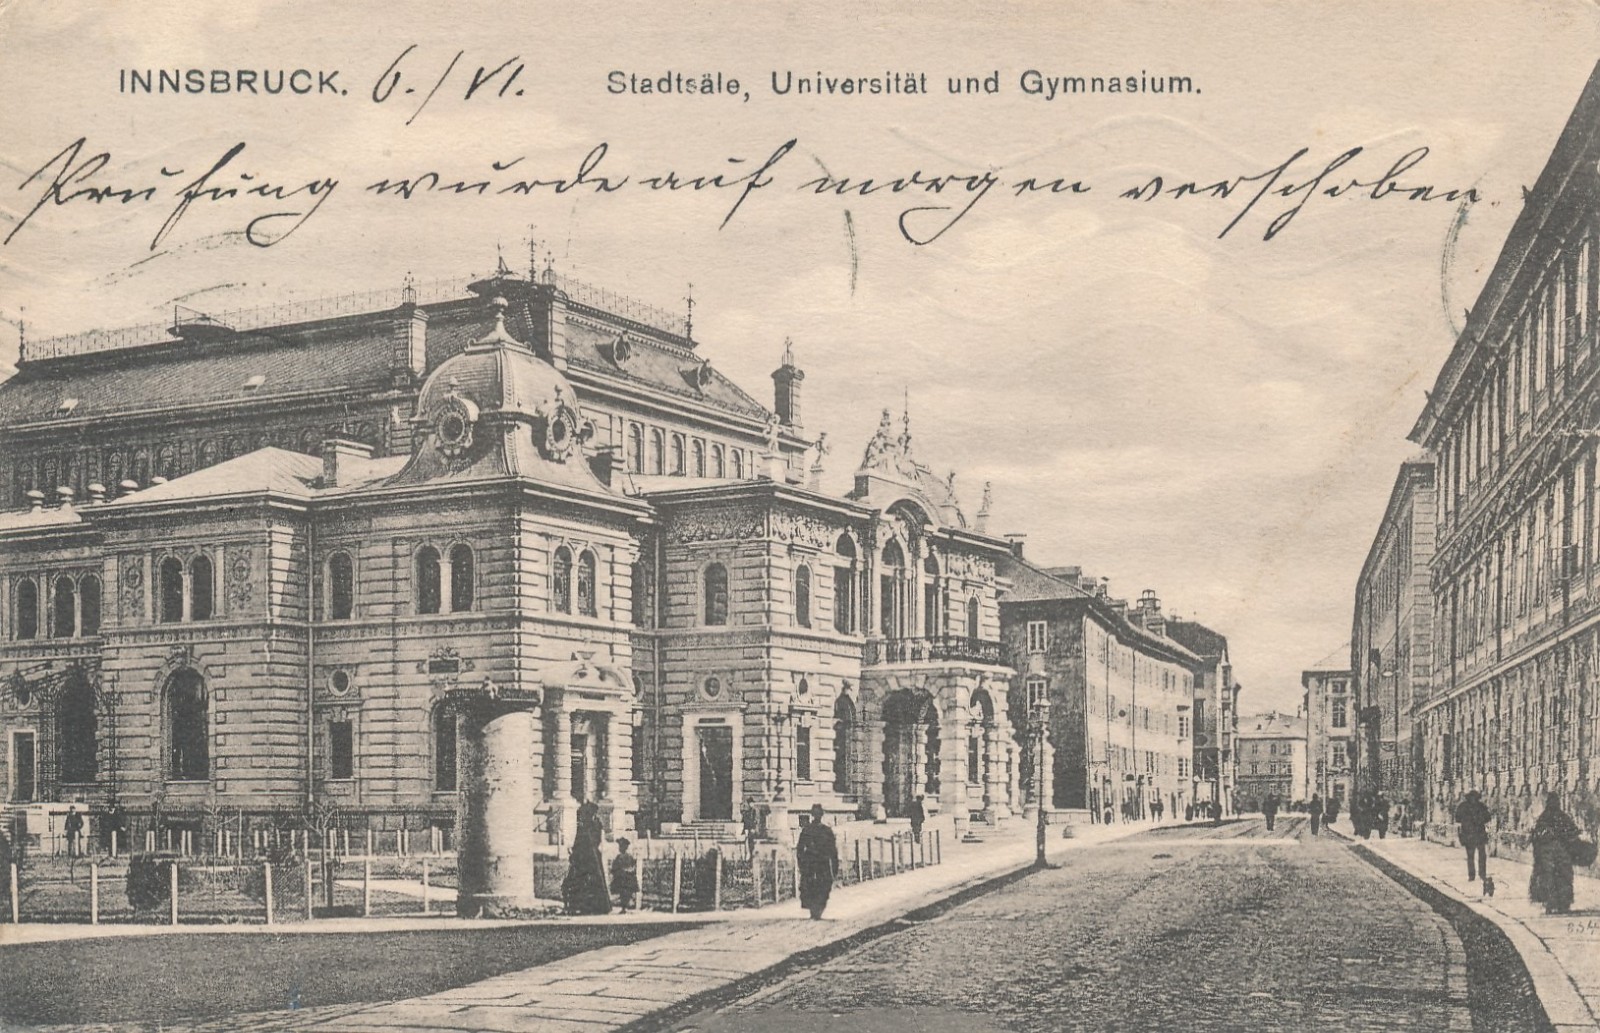 INNSBRUCK. 6./VI. Stadtsäle, Universität und Gymnasium.
Prüfung wurde auf morgen verschoben.